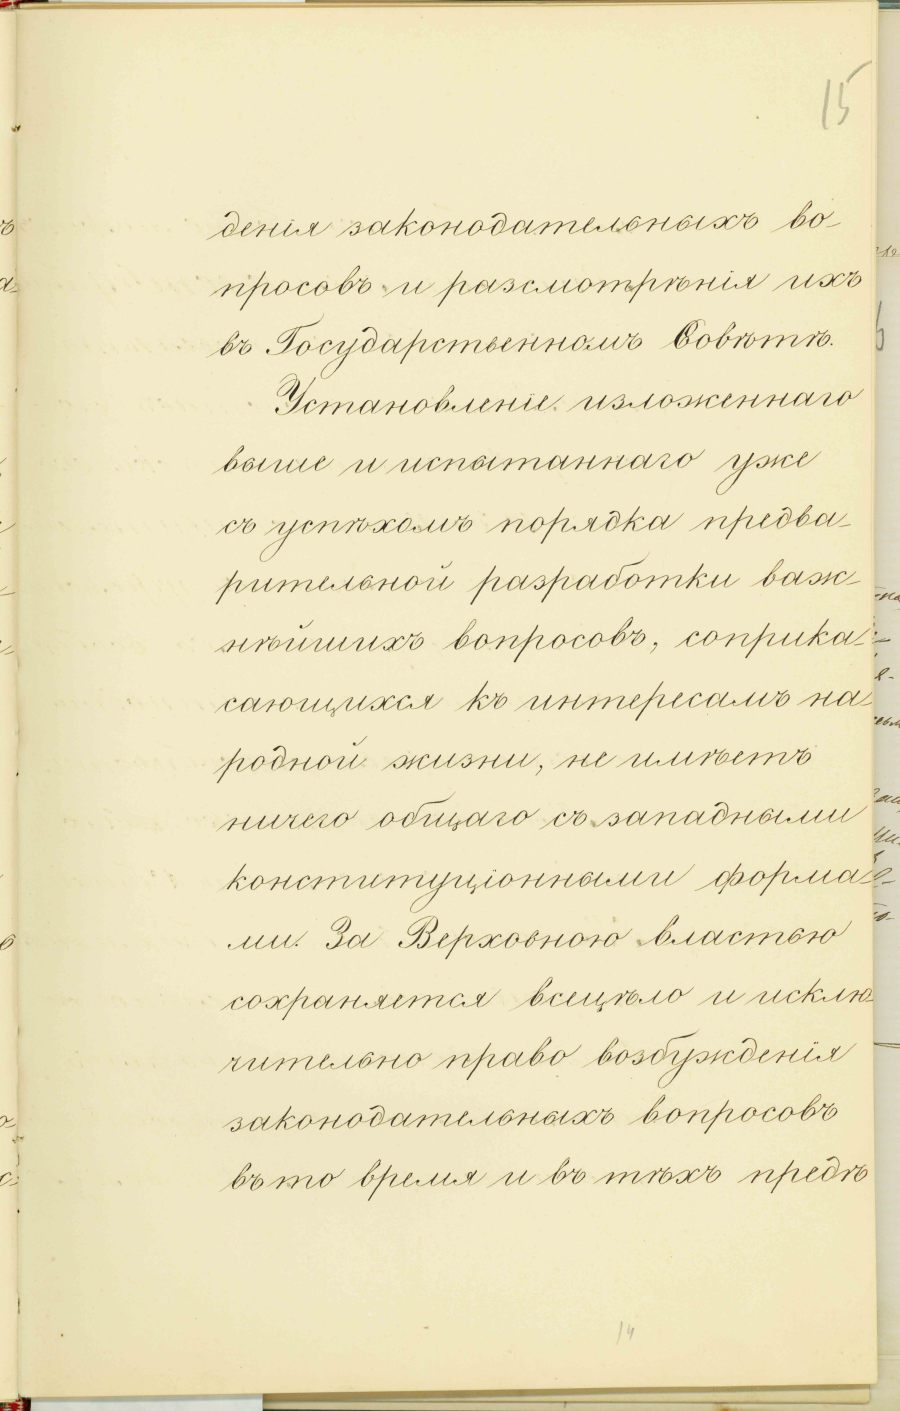 15
денія законодательныхъ во-
просовъ и разсмотрѣнія ихъ
въ Государственномъ Совѣтѣ.
Установленіе изложеннаго
выше и испытаннаго уже
съ успѣхомъ порядка предва-
рительной разработки важ-
нѣйшихъ вопросовъ, соприка-
сающихся къ интересамъ на-
родной жизни, не имѣетъ
ничего общаго съ западными
конституціонными форма-
ми. За Верховною властью
сохраняется всецѣло и исклю-
чительно право возбужденія
законодательныхъ вопросовъ
въ то время и въ тѣхъ предѣ
14